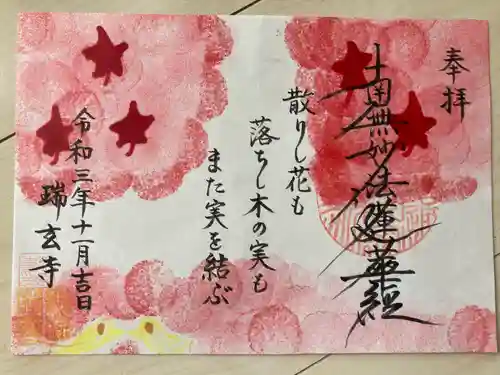 奉拝
南無妙法蓮華経
散りし花も
落ちし木の実も
また実を結ぶ
令和三年十一月吉日
瑞玄寺